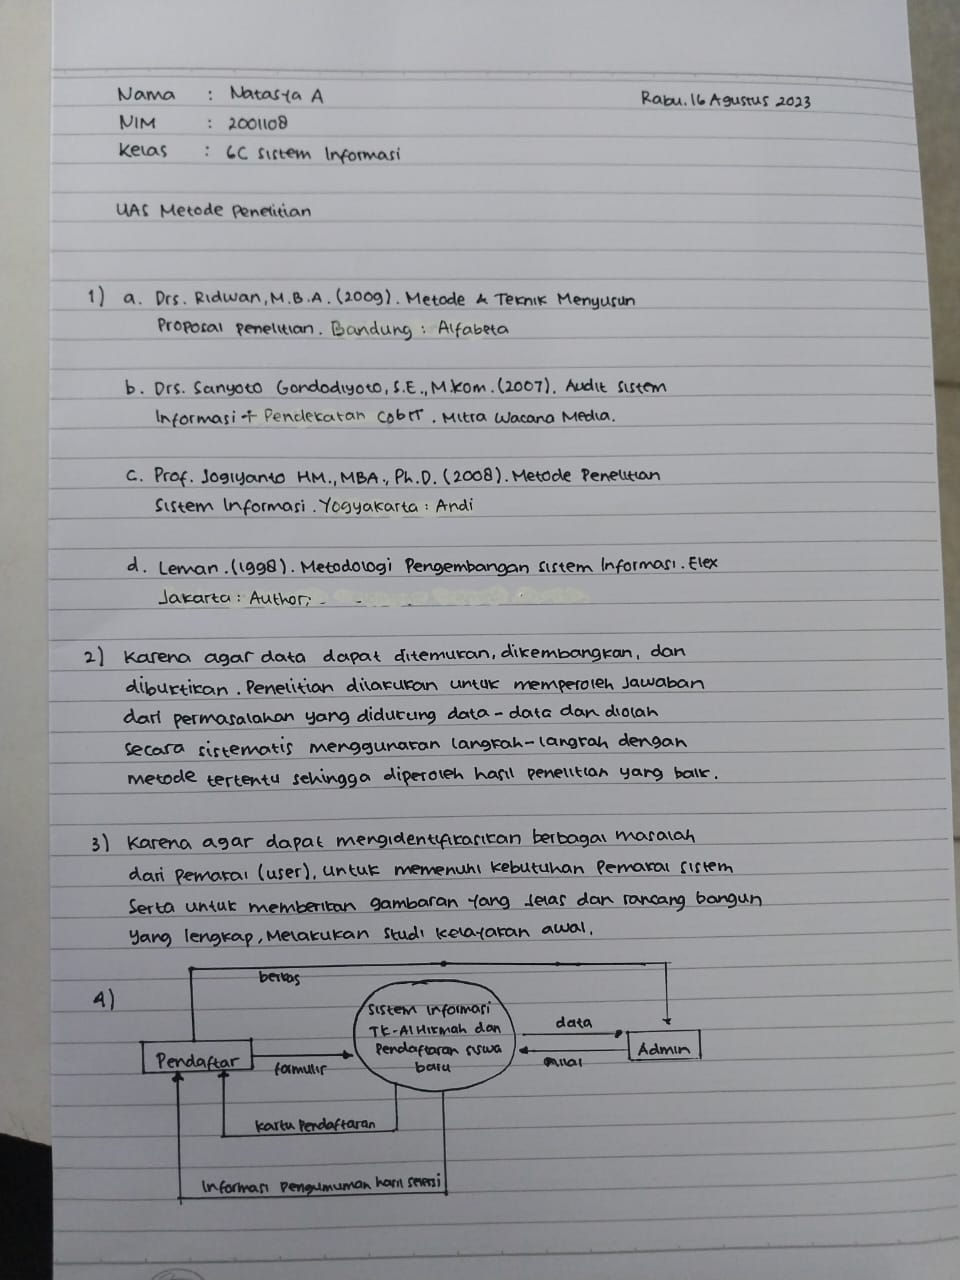 Nama : Natasya A
Rabu, 16 Agustus 2023
NIM : 2001108
Kelas : 6C Sistem Informasi
UAS Metode Penelitian
1) a. Drs. Ridwan, M.B.A. (2009). Metode & Teknik Menyusun
Proposal penelitian. Bandung : Alfabeta
b. Drs. Sanyoto Gondodiyoto, S.E., M.Kom. (2007). Audit sistem
Informasi + Pendekatan CobIT. Mitra Wacana Media.
c. Prof. Jogiyanto HM., MBA., Ph.D. (2008). Metode Penelitian
Sistem Informasi. Yogyakarta : Andi
d. Leman. (1998). Metodologi Pengembangan sistem Informasi. Elex
Jakarta : Author;
2) Karena agar data dapat ditemukan, dikembangkan, dan
dibuktikan. Penelitian dilakukan untuk memperoleh Jawaban
dari permasalahan yang didukung data-data dan diolah
secara sistematis menggunakan langkah-langkah dengan
metode tertentu sehingga diperoleh hasil penelitian yang baik.
3) Karena agar dapat mengidentifikasikan berbagai masalah
dari Pemakai (user), untuk memenuhi kebutuhan Pemakai sistem
Serta untuk memberikan gambaran yang Jelas dan rancang bangun
yang lengkap, Melakukan studi kelayakan awal.
4)
berkas
Sistem informasi
TK-Al Hikmah dan
Pendaftaran siswa
baru
Pendaftar
formulir
data
Admin
Kartu Pendaftaran
Informasi Pengumuman hasil seleksi